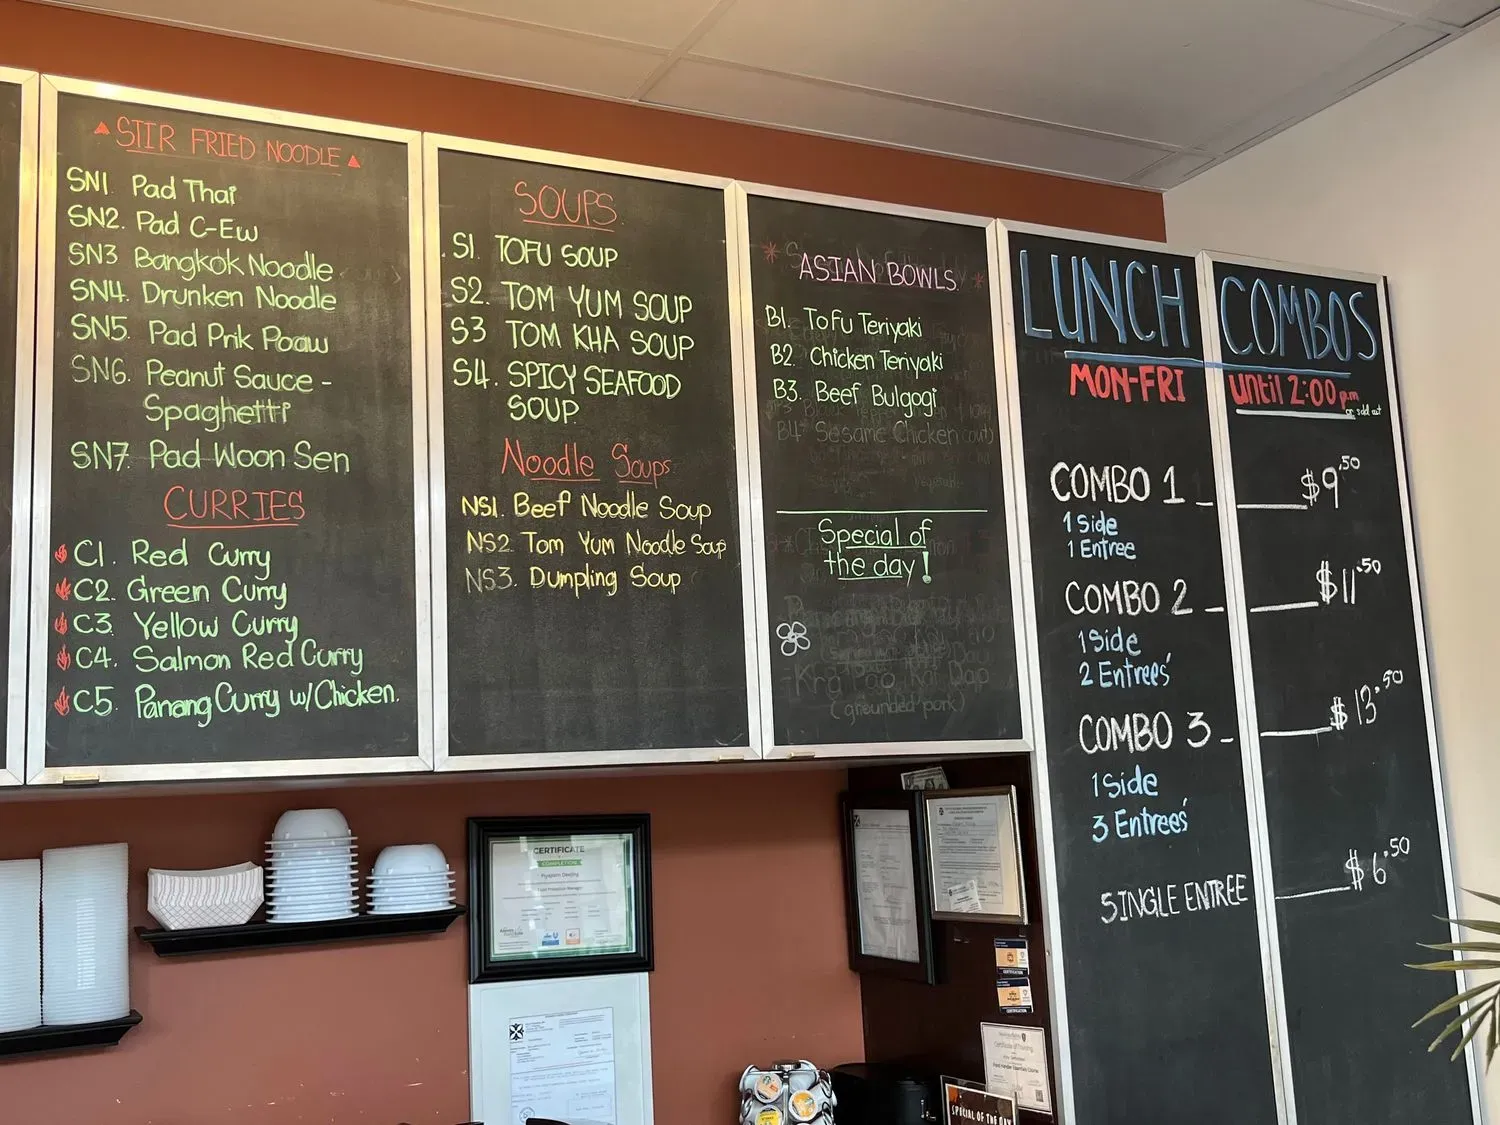 STIR FRIED NOODLE
SN1. Pad Thai
SN2. Pad C-Ew
SN3 Bangkok Noodle
SN4. Drunken Noodle
SN5. Pad Prik Paaw
SN6. Peanut Sauce -
Spaghetti
SN7. Pad Woon Sen
CURRIES
C1. Red Curry
C2. Green Curry
C3. Yellow Curry
C4. Salmon Red Curry
C5. Panang Curry w/Chicken.
SOUPS
S1. TOFU SOUP
S2. TOM YUM SOUP
S3 TOM KHA SOUP
S4. SPICY SEAFOOD
SOUP.
Noodle Soups
NS1. Beef Noodle Soup
NS2 Tom Yum Noodle Soup
NS3. Dumpling Soup
ASIAN BOWLS.
B1. Tofu Teriyaki
B2. Chicken Teriyaki
B3. Beef Bulgogi
B4 Sesame Chicken (out)
Special of
the day!
(grounded pork)
LUNCH COMBOS
MON-FRI until 2:00 p.m
or sold out
COMBO 1 $9.50
1 Side
1 Entree
COMBO 2 $11.50
1 Side
2 Entrees'
COMBO 3 $13.50
1 Side
3 Entrees'
SINGLE ENTREE $6.50
CERTIFICATE
COMPLETION
Certificate of Training
SPECIAL OF THE DAY